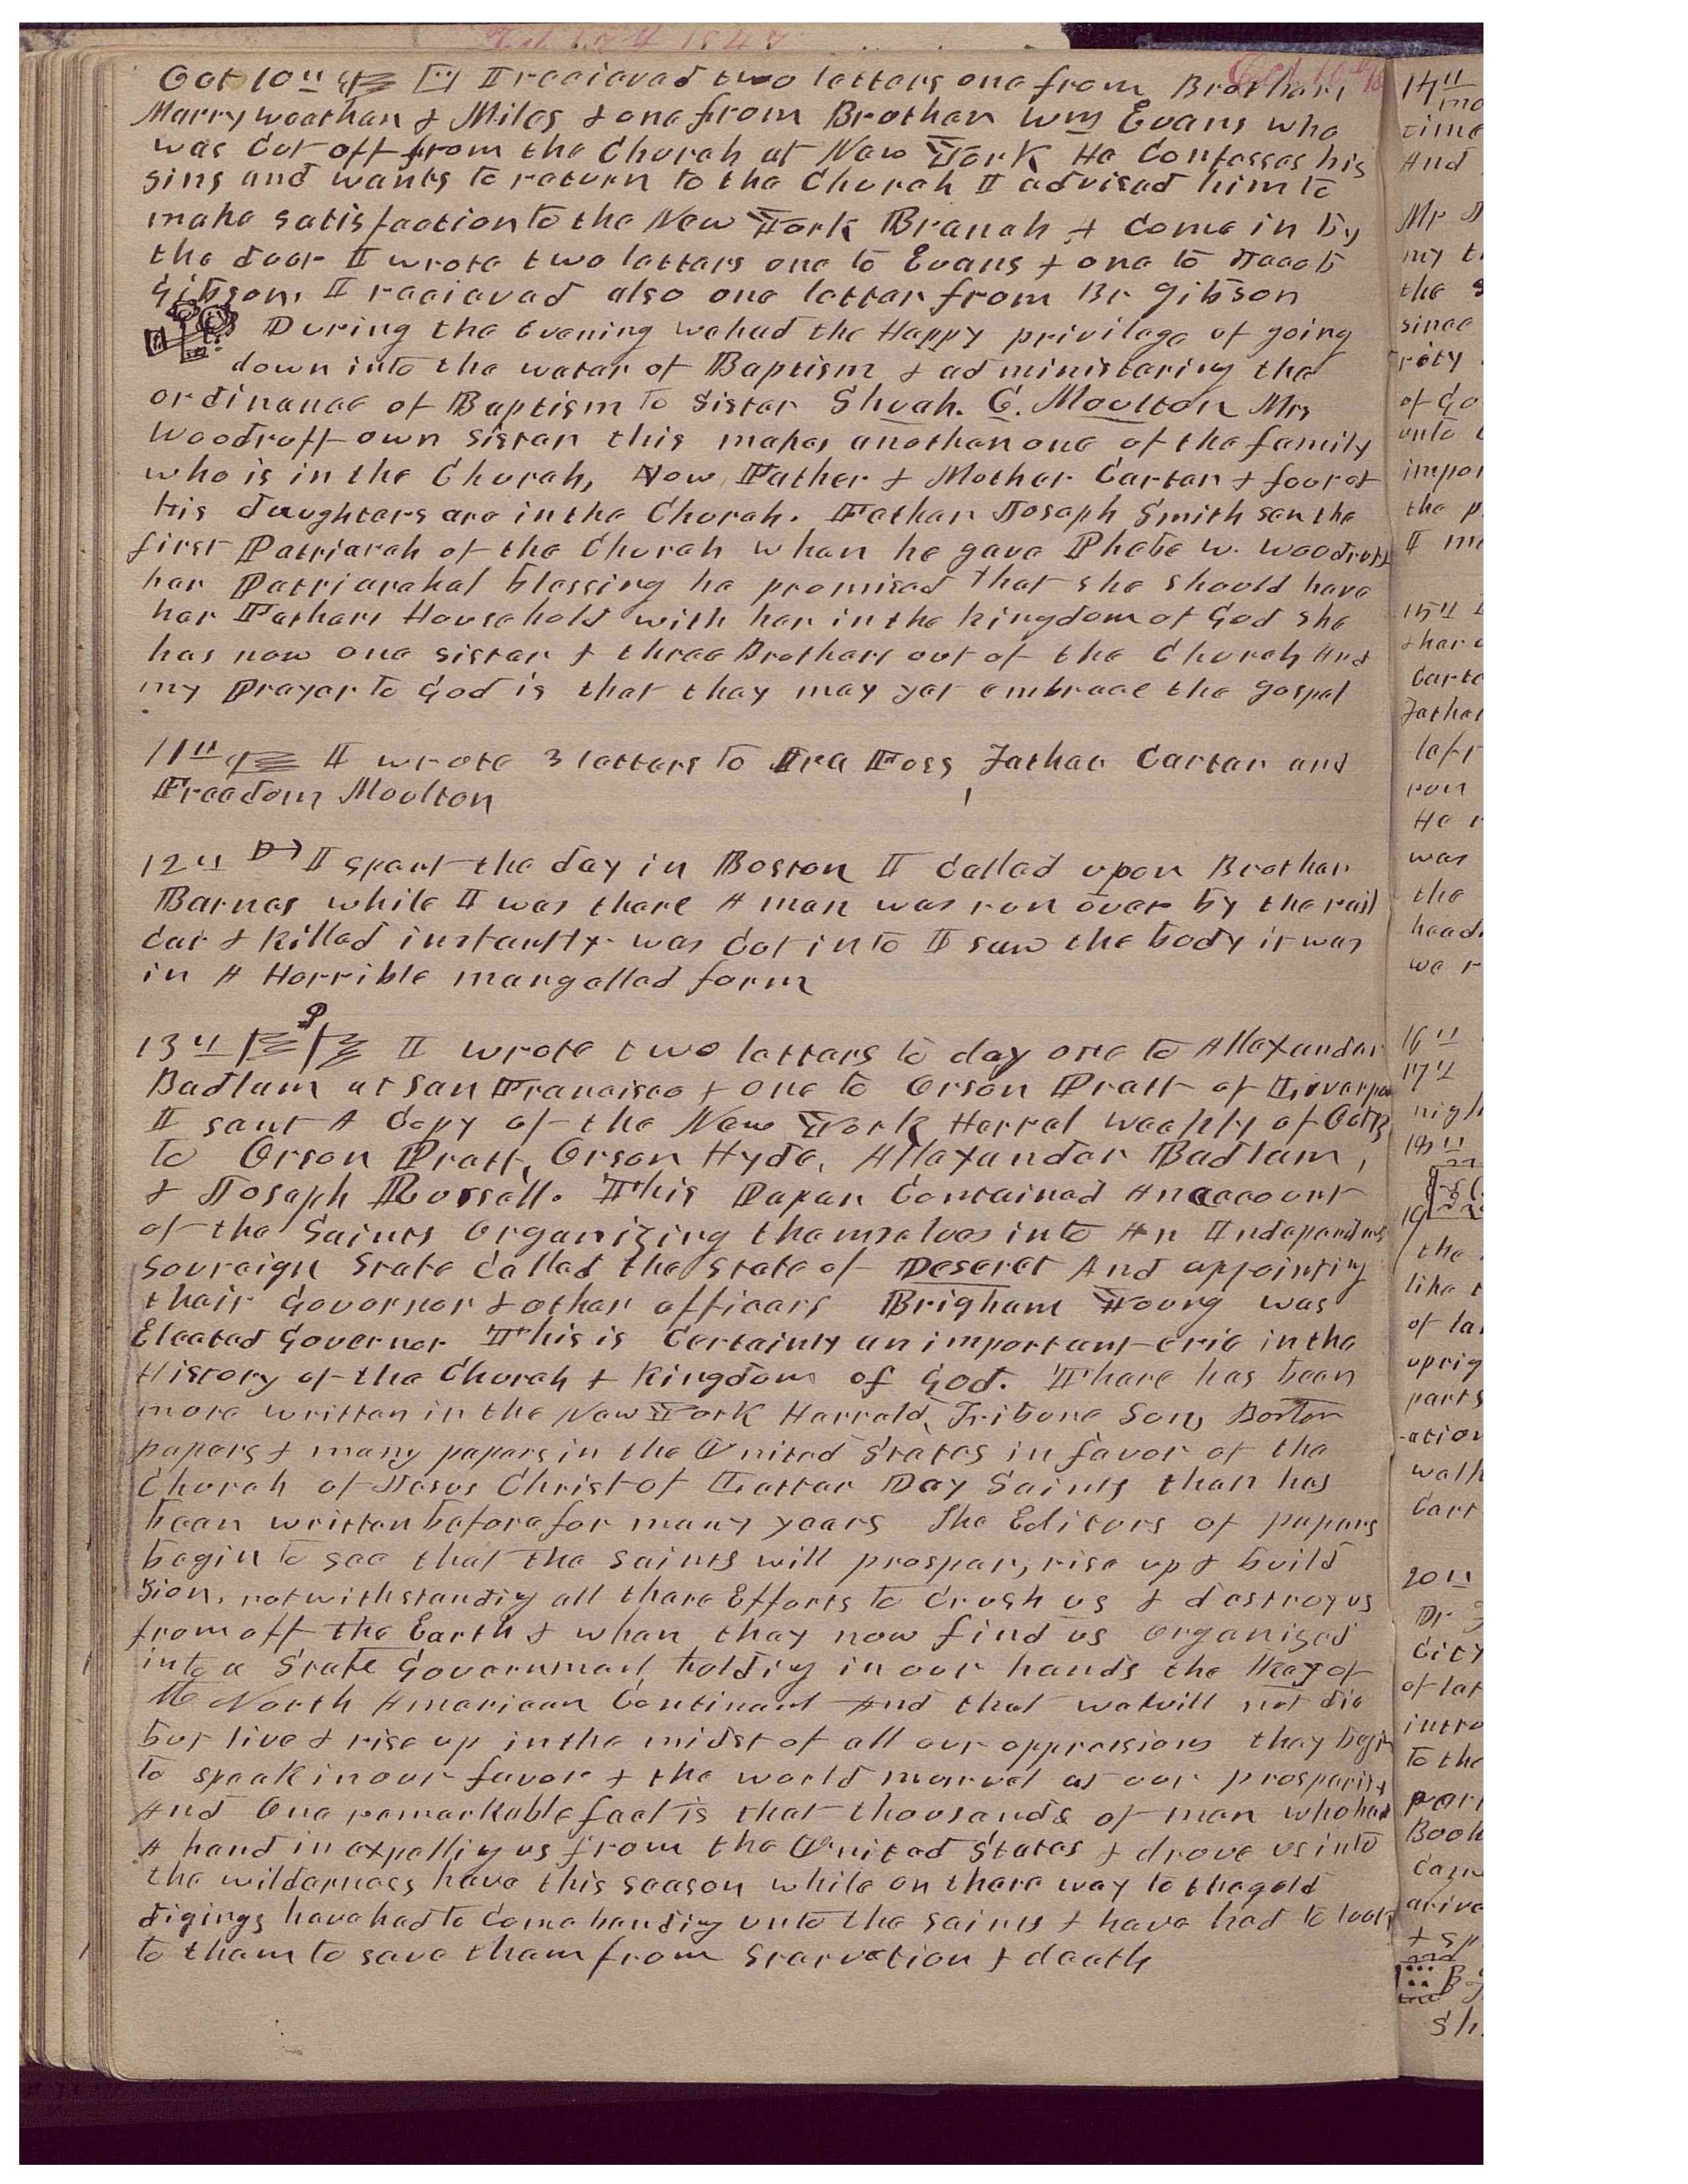 Oct 10th I recieved two letters one from Brothers
Merryweather & Miles & one from Brother Wm Evans who
was Cut off from the Church at New York He Confesses his
sins and wants to return to the Church I advised him to
make satisfaction to the New York Branch & Come in by
the door I wrote two letters one to Evans & one to Jacob
Gibson. I recieved also one letter from Br Gibson
During the Evening we had the Happy privilege of going
down into the water of Baptism & administering the
ordinance of Baptism to Sister Shuah. C. Moulton Mrs
Woodruff own sister this makes another one of the family
who is in the Church, Now Father & Mother Carter & four of
his daughters are in the Church. Father Joseph Smith sen the
first Patriarch of the Church when he gave Phebe W. Woodruff
her Patriarchal blessing he promised that she should have
her Fathers Household with her in the kingdom of God she
has now one sister & three Brothers out of the Church And
my prayer to God is that they may yet embrace the gospel
11th I wrote 3 letters to Ira Foss, Father Carter and
Freedom Moulton
12th I spent the day in Boston I Called upon Brother
Barnes while I was there A man was run over by the rail
Car & killed instantly was Cut in to I saw the body it was
in A Horrible mangelled form
13th I wrote two letters to day one to Allexander
Badlam at San Francisco & one to Orson Pratt of Liverpool
I sent A Copy of the New York Herral weekly of Oct
to Orson Pratt, Orson Hyde, Allexander Badlam,
& Joseph Russell. This Paper Contained An account
of the Saints Organizing themselves into An Independant
Soureign State Called the State of Deseret And appointing
their Governor & other officers Brigham Young was
Elected Governor This is Certainly an important erie in the
History of the Church & Kingdom of God. There has been
more written in the New York Harrald, Tribune Sun, Boston
papers & many papers in the United States in favor of the
Church of Jesus Christ of Latter Day Saints than has
been written before for many years The Editors of papers
begin to see that the Saints will prosper, rise up & build
Zion, notwithstanding all there Efforts to Crush us & destroy us
from off the Earth & when they now find us organized
into a State Government holding in our hands the Key of
the North American Continent And that we will not die
but live & rise up in the midst of all our oppressions they begin
to speak in our favor & the world marvel at our prosperity
And One remarkable fact is that thousands of men who had
A hand in expelling us from the United States & drove us into
the wilderness have this season while on there way to the gold
digings have had to Come bending unto the Saints & have had to look
to them to save them from starvation & death
14th
time
And
Mr
my
the
since
of Go
unto
the
15th
Carte
Father
left
He
was
the
head
we
16th
17th
nigh
18th
19
the
like
of la
uprig
parts
-ation
walk
Cart
20th
Dr
City
of lat
intro
to the
Book
Came
arive